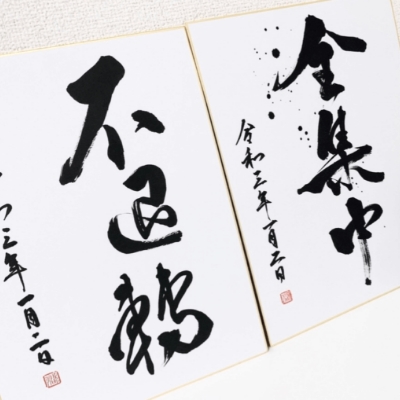 全集中
令和三年一月二日
不退轉
三年一月二日